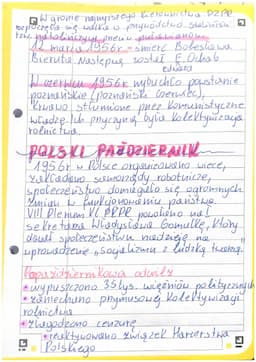 W gronie najwyższego kierownictwa PZPR
rozpoczęła się walka o przywództwo
12 marca 1956r - śmierć Bolesława
Bieruta. Następcą został E. Ochab
Edward
W czerwcu 1956r wybuchło powstanie
poznańskie (poznański czerwiec),
krwawo stłumione przez komunistyczne
władze. Ich przyczyną była kolektywizacja
rolnictwa.
POLSKI PAŹDZIERNIK
1956r w Polsce organizowano wiece,
zakładano samorządy robotnicze,
społeczeństwo domagało się ogromnych
zmian w funkcjonowaniu państwa.
VIII Plenum KC PZPR powołano na I
sekretarza Władysława Gomułkę, który
dawał społeczeństwu nadzieję na
wprowadzenie "socjalizmu z ludzką twarzą"
Popaździernikowa odwilż
• wypuszczono 35 tys. więźniów politycznych
• zaniechano przymusowej kolektywizacji
rolnictwa
• złagodzono cenzurę
• reaktywowano Związek Harcerstwa
Polskiego